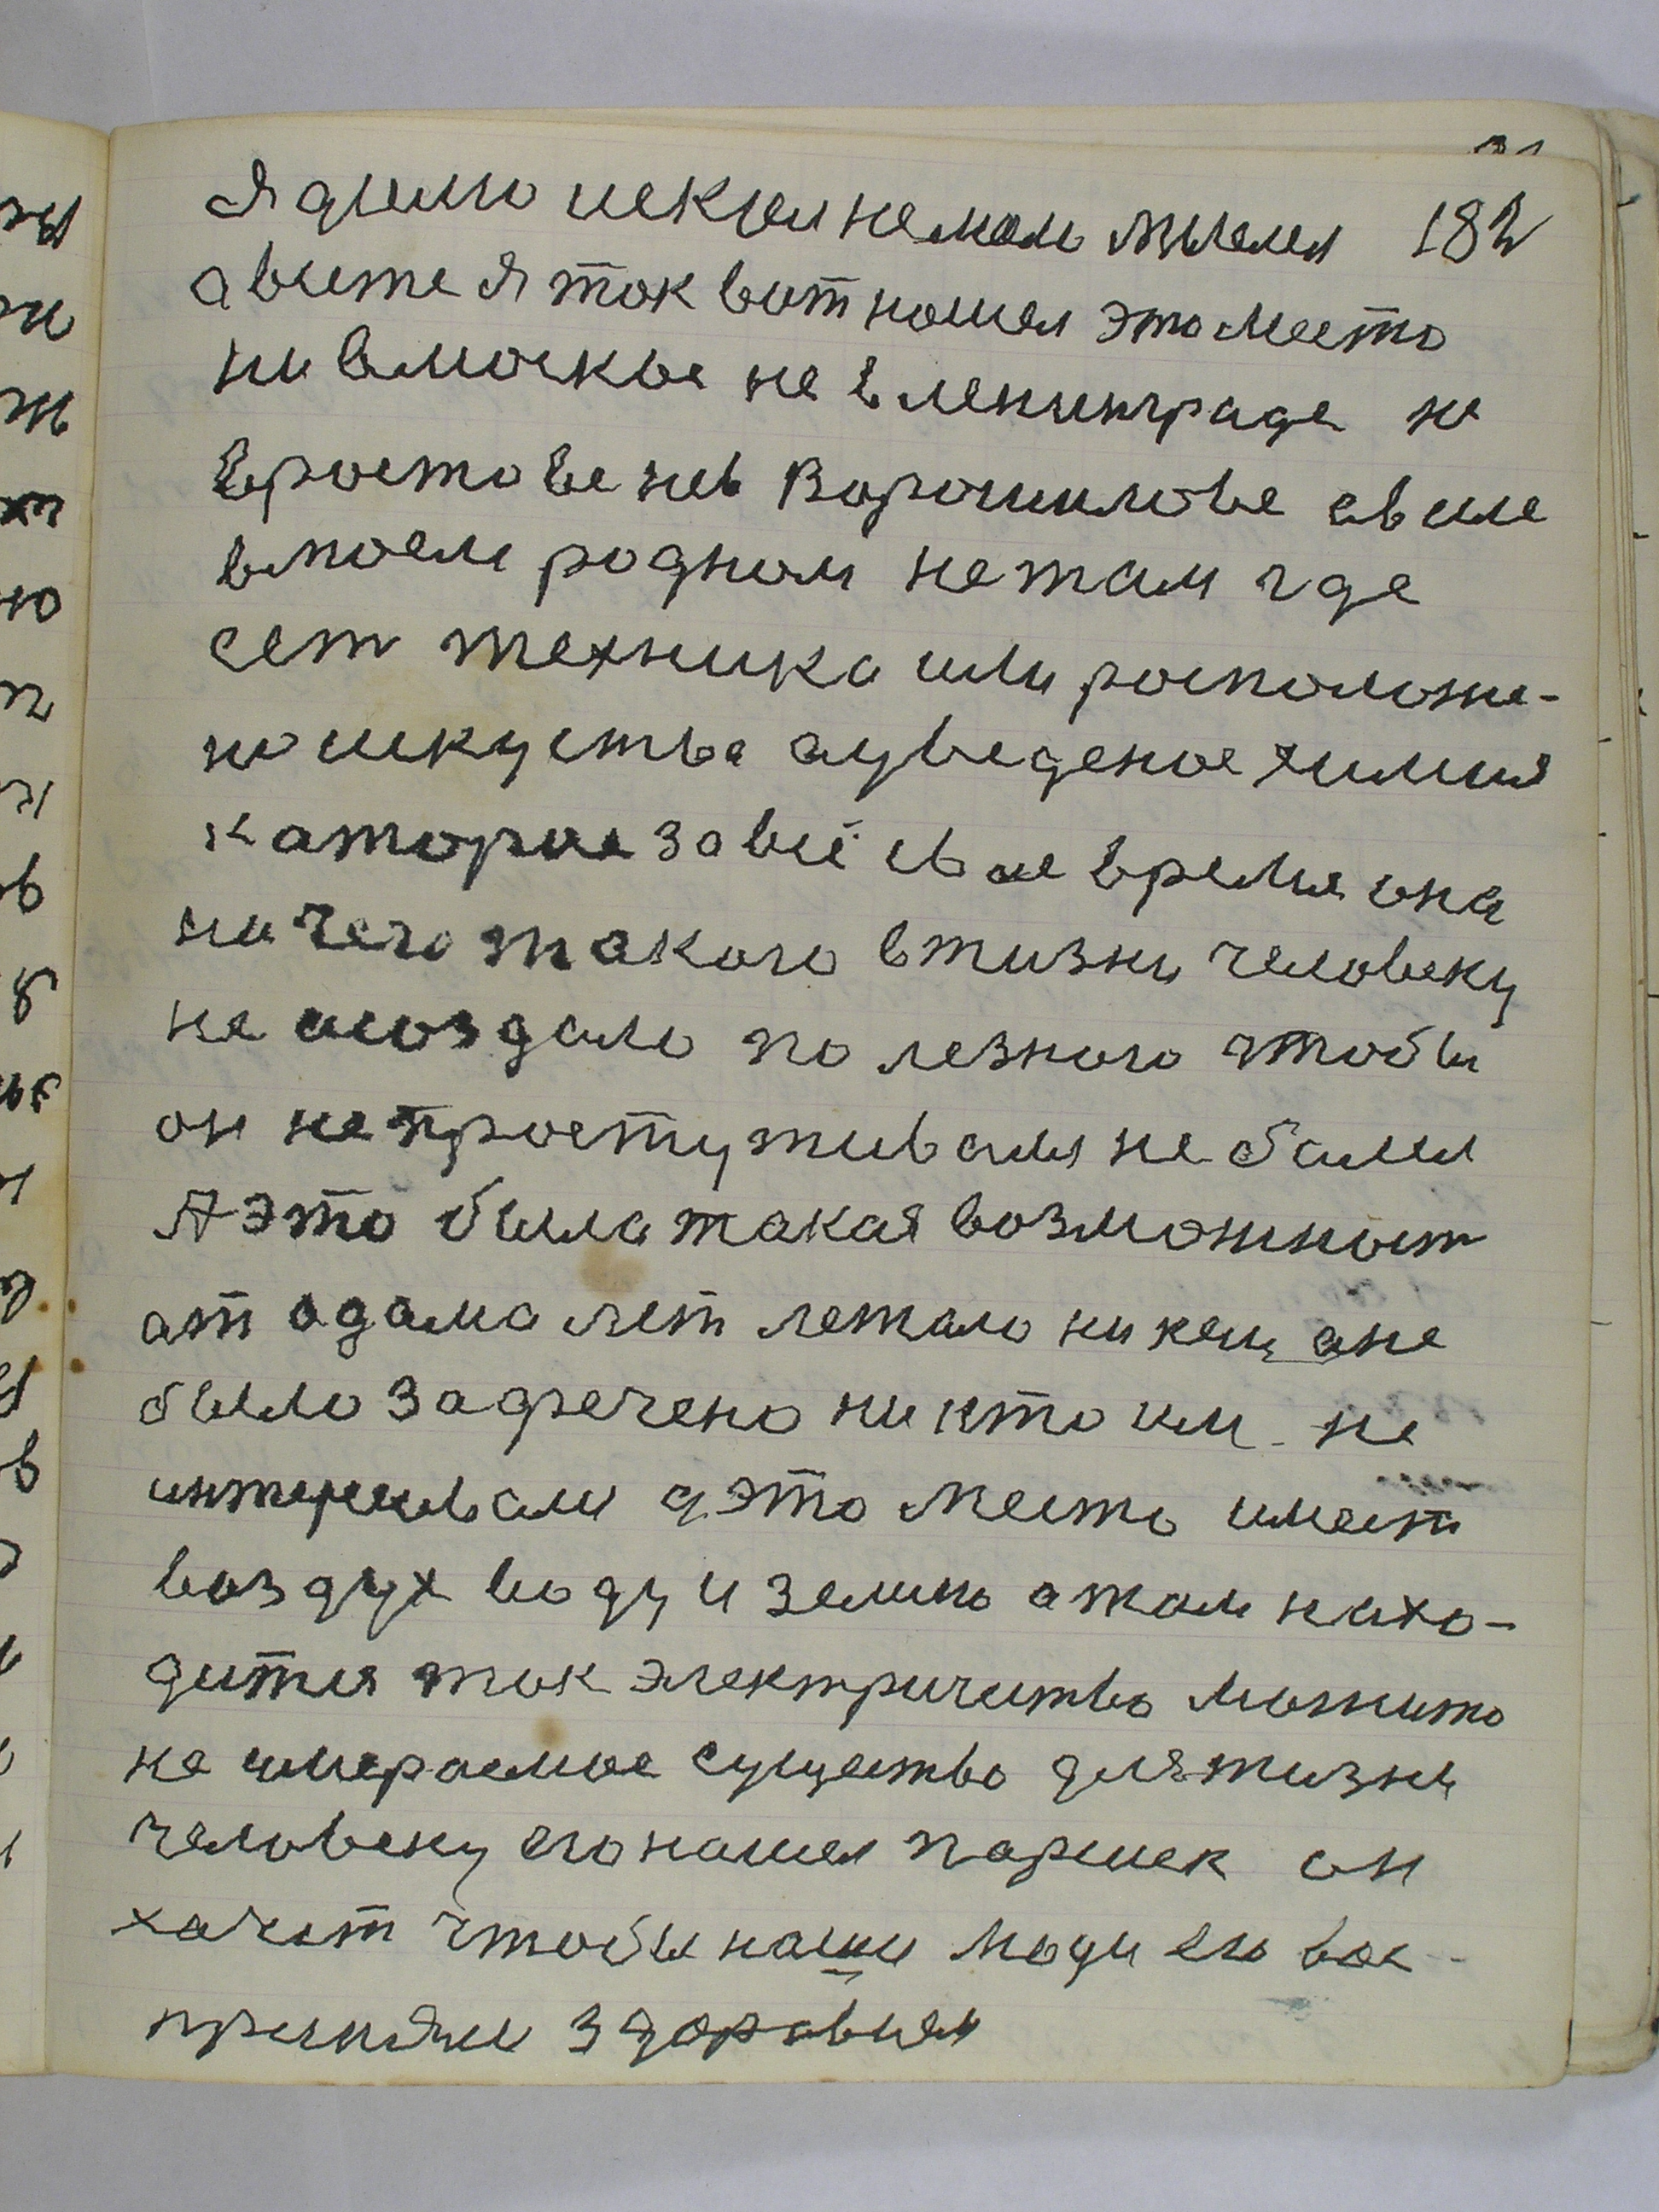 182
Я думаю искал немало мысел
а всиже Я ток вот нашел это место
ни вмоскве не в ленинграде не
вростове нев Ворошилове авише
вмоем родном не там где
сет техника или росположе-
но искуства ауведеное химия
каторое за всё свое время она
ни чего такого вжизни человеку
не создало полезного чтобы
он не простуживалися не балел
А это была такая возможност
от адама лет летало никему оне
было заджечено ни кто им не
воздух воду и землю а там нахо-
дится ток электричитво
не умераемое существо для жизни
человеку его нашел паршек он
хачет чтобы наши люди его вос-
приняли здоровием